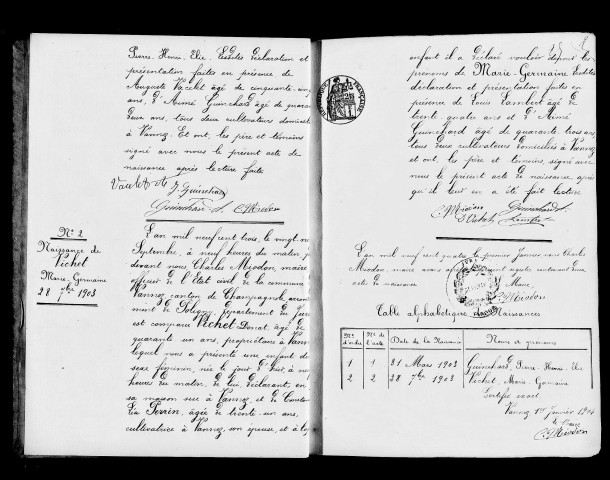 Pierre Henri Elie. Lesdites déclaration et
présentation faites en présence de
Auguste Vacelet âgé de cinquante
ans, d'Aimé Guinchard âgé de quarante
deux ans, tous deux cultivateurs domiciliés
à Vannoz. Et ont, les père et témoins
signé avec nous le présent acte de
naissance après lecture faite
Vacelet J. Guinchard
Guinchard A. C. Miodon
N° 2
Naissance de
Vichet
Marie Germaine
28 7bre 1903
L'an mil neuf cent trois, le vingt
Septembre, à neuf heures du matin
devant nous Charles Miodon, maire
officier de l'Etat civil de la commune
Vannoz canton de Champagnole, arron
ment de Poligny, département du Jura
est comparu Vichet Donat, âgé de
quarante un ans, propriétaire à Vannoz
lequel nous a présenté une enfant de
sexe féminin, née le jour d'hier à
heures du matin, de lui, déclarant, en
sa maison sise à Vannoz et de
Perrin, âgée de trente un ans,
cultivatrice à Vannoz, son épouse, et à
enfant il a déclaré vouloir donner les
prénoms de Marie-Germaine lesdites
déclaration et présentation faites en
présence de Louis Lambert âgé de
trente quatre ans et d'Aimé
Guinchard âgé de quarante trois ans
tous deux cultivateurs domiciliés à Vannoz
et ont, les père et témoins, signé avec
nous le présent acte de naissance après
qu'il leur en a été fait lecture
C. Miodon Guinchard A.
D. Vichet Lambert
L'an mil neuf cent quatre le premier Janvier nous Charles
Miodon, maire avons
acte de naissance
Maire,
C. Miodon
Table alphabétique Naissances
N° d'ordre N° de l'acte Date de la Naissance Noms et prénoms
1 1 31 Mars 1903 Guinchard, Pierre Henri Elie
2 2 28 7bre 1903 Vichet, Marie Germaine
Certifié exact
Vannoz 1er Janvier 1904
Le Maire
C. Miodon